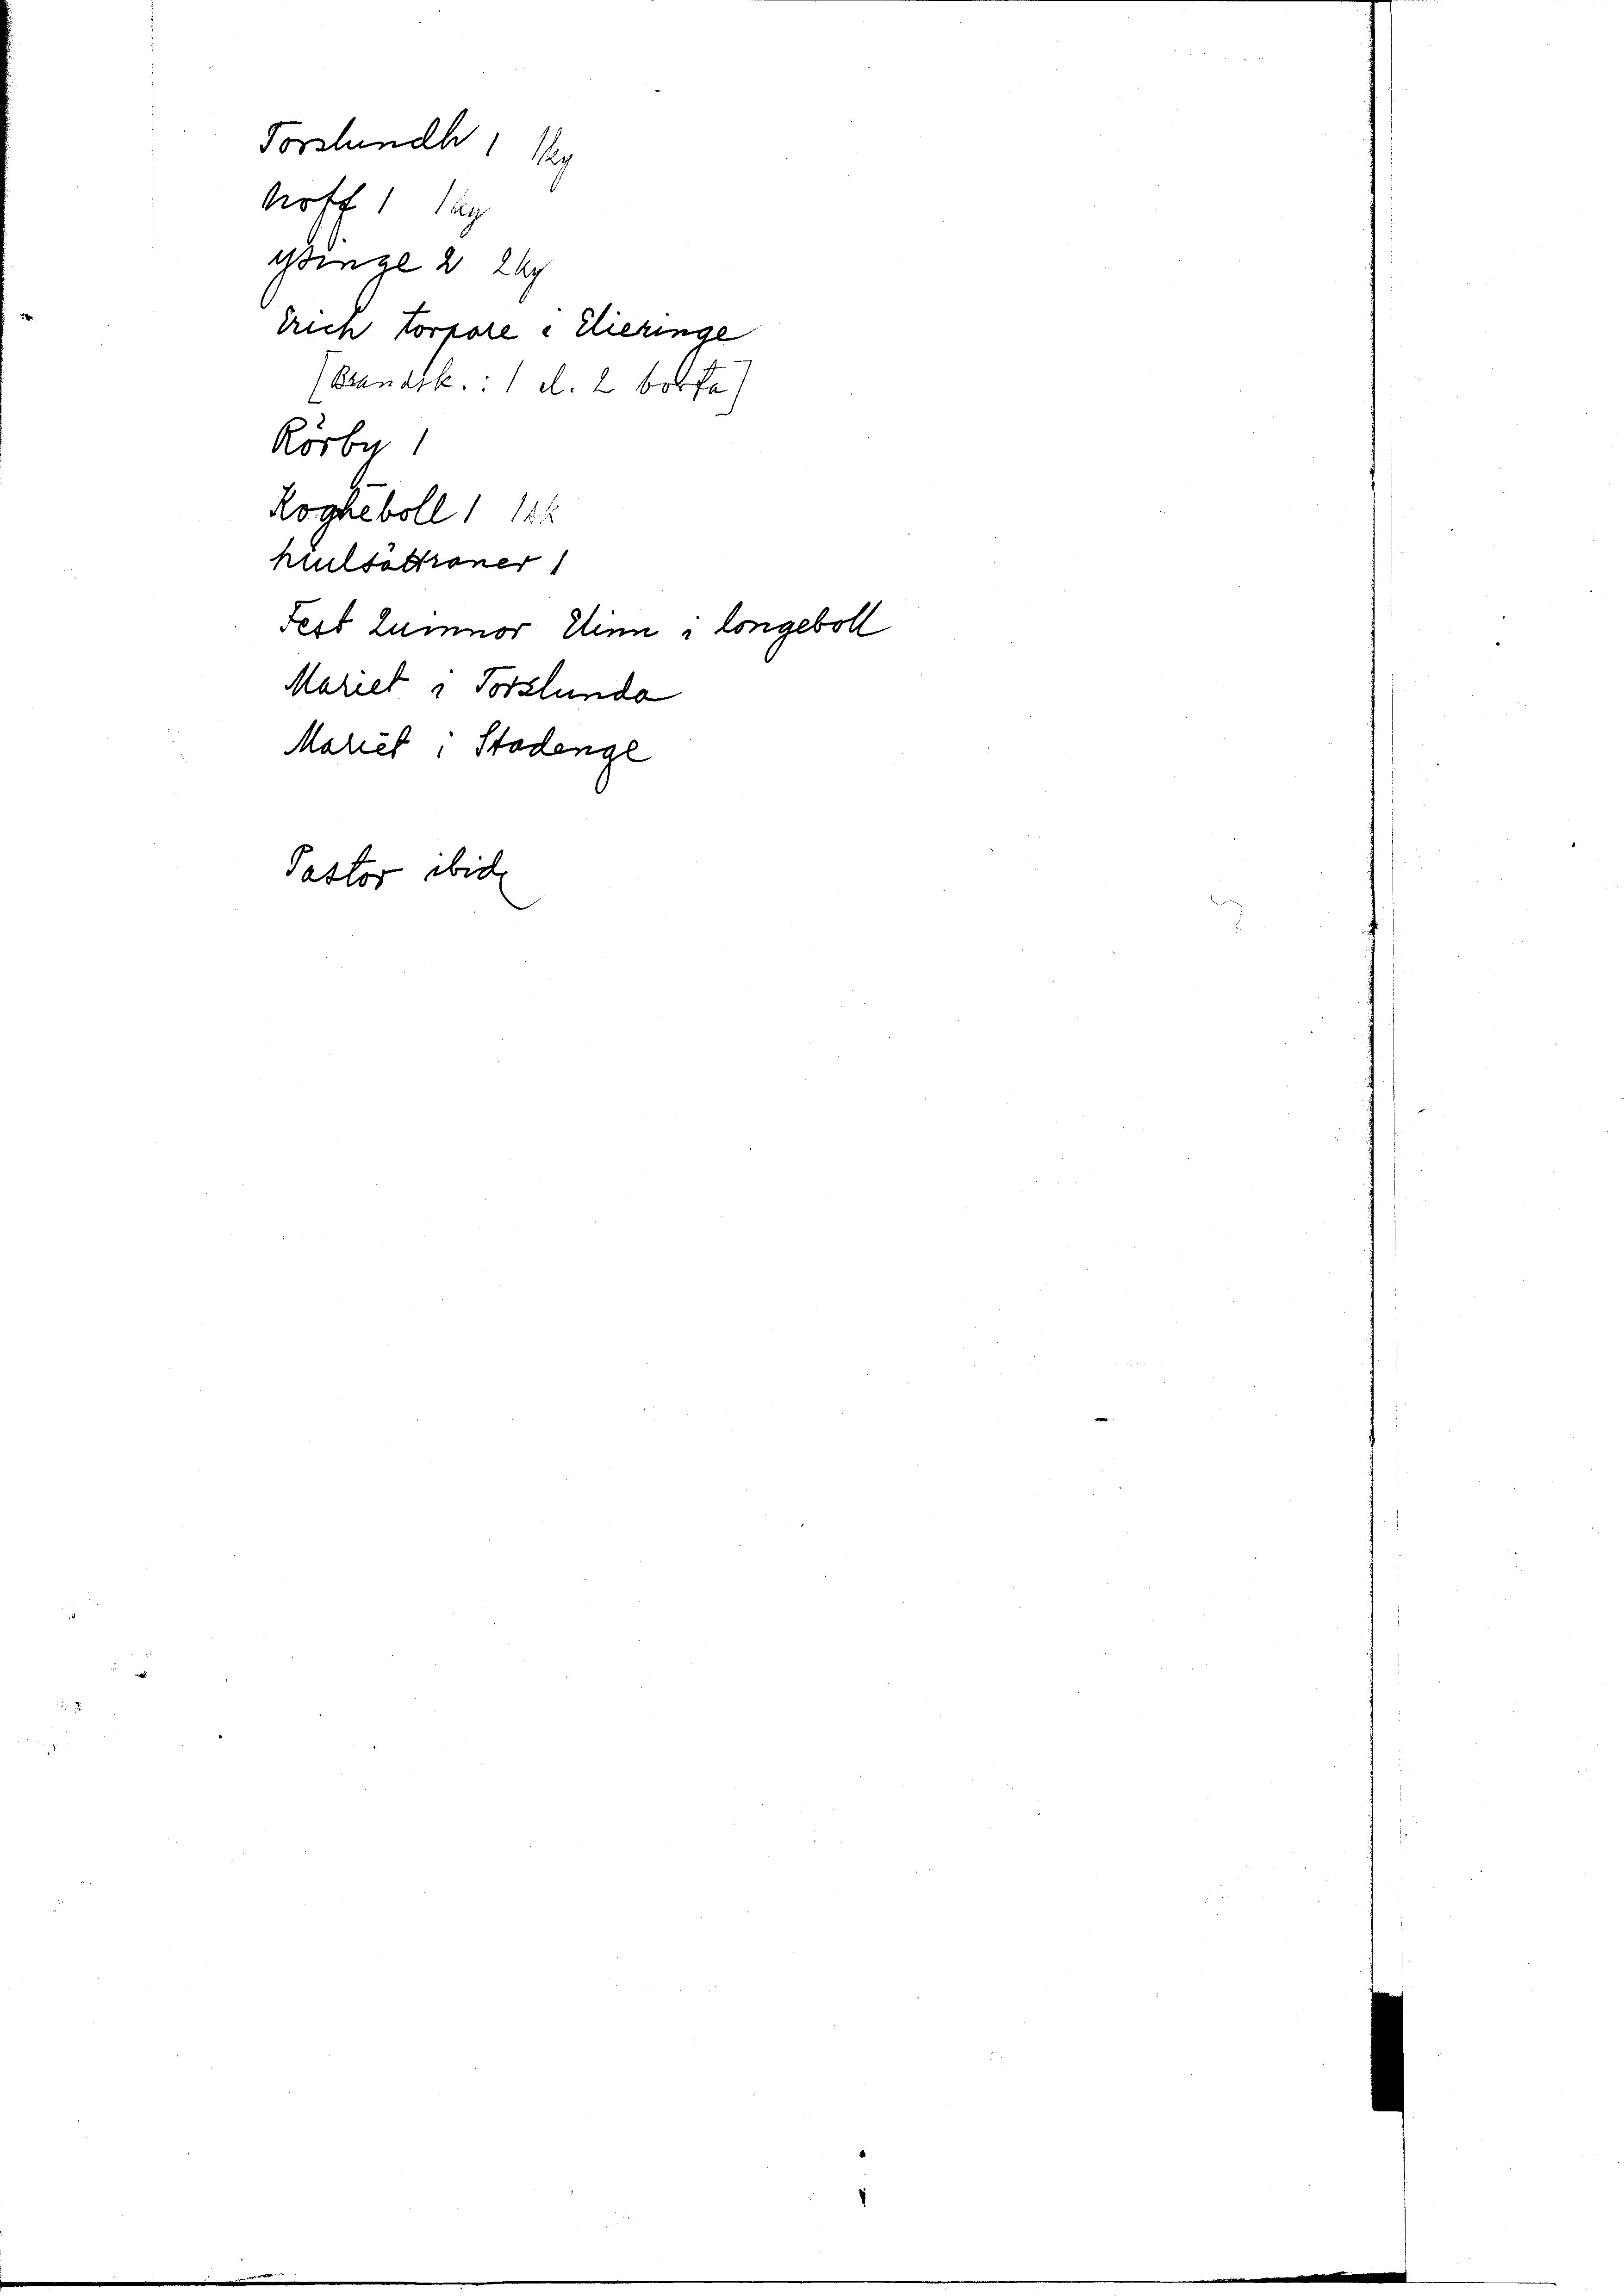 Torslundh 1 1ky
hoff 1 1ky
ysinge 2 2ky
Erich torpare i Elieringe
(Brandsk.: 1 el. 2 borta)
Rörby 1
Rogheboll 1 1sk
hiulsättraner 1
Fest Quinnor Elinn i longeboll
Mariet i Torslunda
Mariet i Stadenge
Pastor ibid